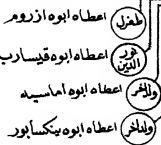 طغرل اعطاه ابوه ازروم
نور الدين اعطاه ابوه قيسارية
والاخر اعطاه ابوه اماسيه
والاخر اعطاه ابوه بنكسابور